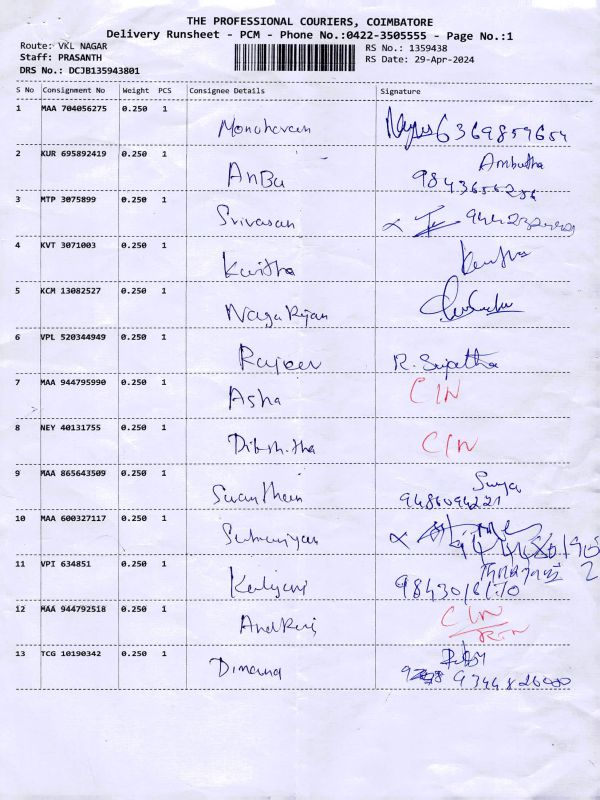 THE PROFESSIONAL COURIERS, COIMBATORE
Delivery Runsheet - PCM - Phone No.:0422-3505555 - Page No.:1
Route: VKL NAGAR
RS No.: 1359438
Staff: PRASANTH
RS Date: 29-Apr-2024
DRS No.: DCJB135943801
S No Consignment No Weight PCS Consignee Details Signature
1 MAA 704056275 0.250 1
Manoharan 6369859654
2 KUR 695892419 0.250 1 Ambutha
AnBu 9843656256
3 MTP 3075899 0.250 1
Srivasan
4 KVT 3071003 0.250 1
Kavitha
5 KCM 13082527 0.250 1
Naga Rajan
6 VPL 520344949 0.250 1
Rajeev R. Sujatha
7 MAA 944795990 0.250 1
Asha C/N
8 NEY 40131755 0.250 1
C/N
9 MAA 865643509 0.250 1 Surya
9486094221
10 MAA 600327117 0.250 1
11 VPI 634851 0.250 1
Kalyani
12 MAA 944792518 0.250 1
C/N
13 TCG 10190342 0.250 1
9344826000